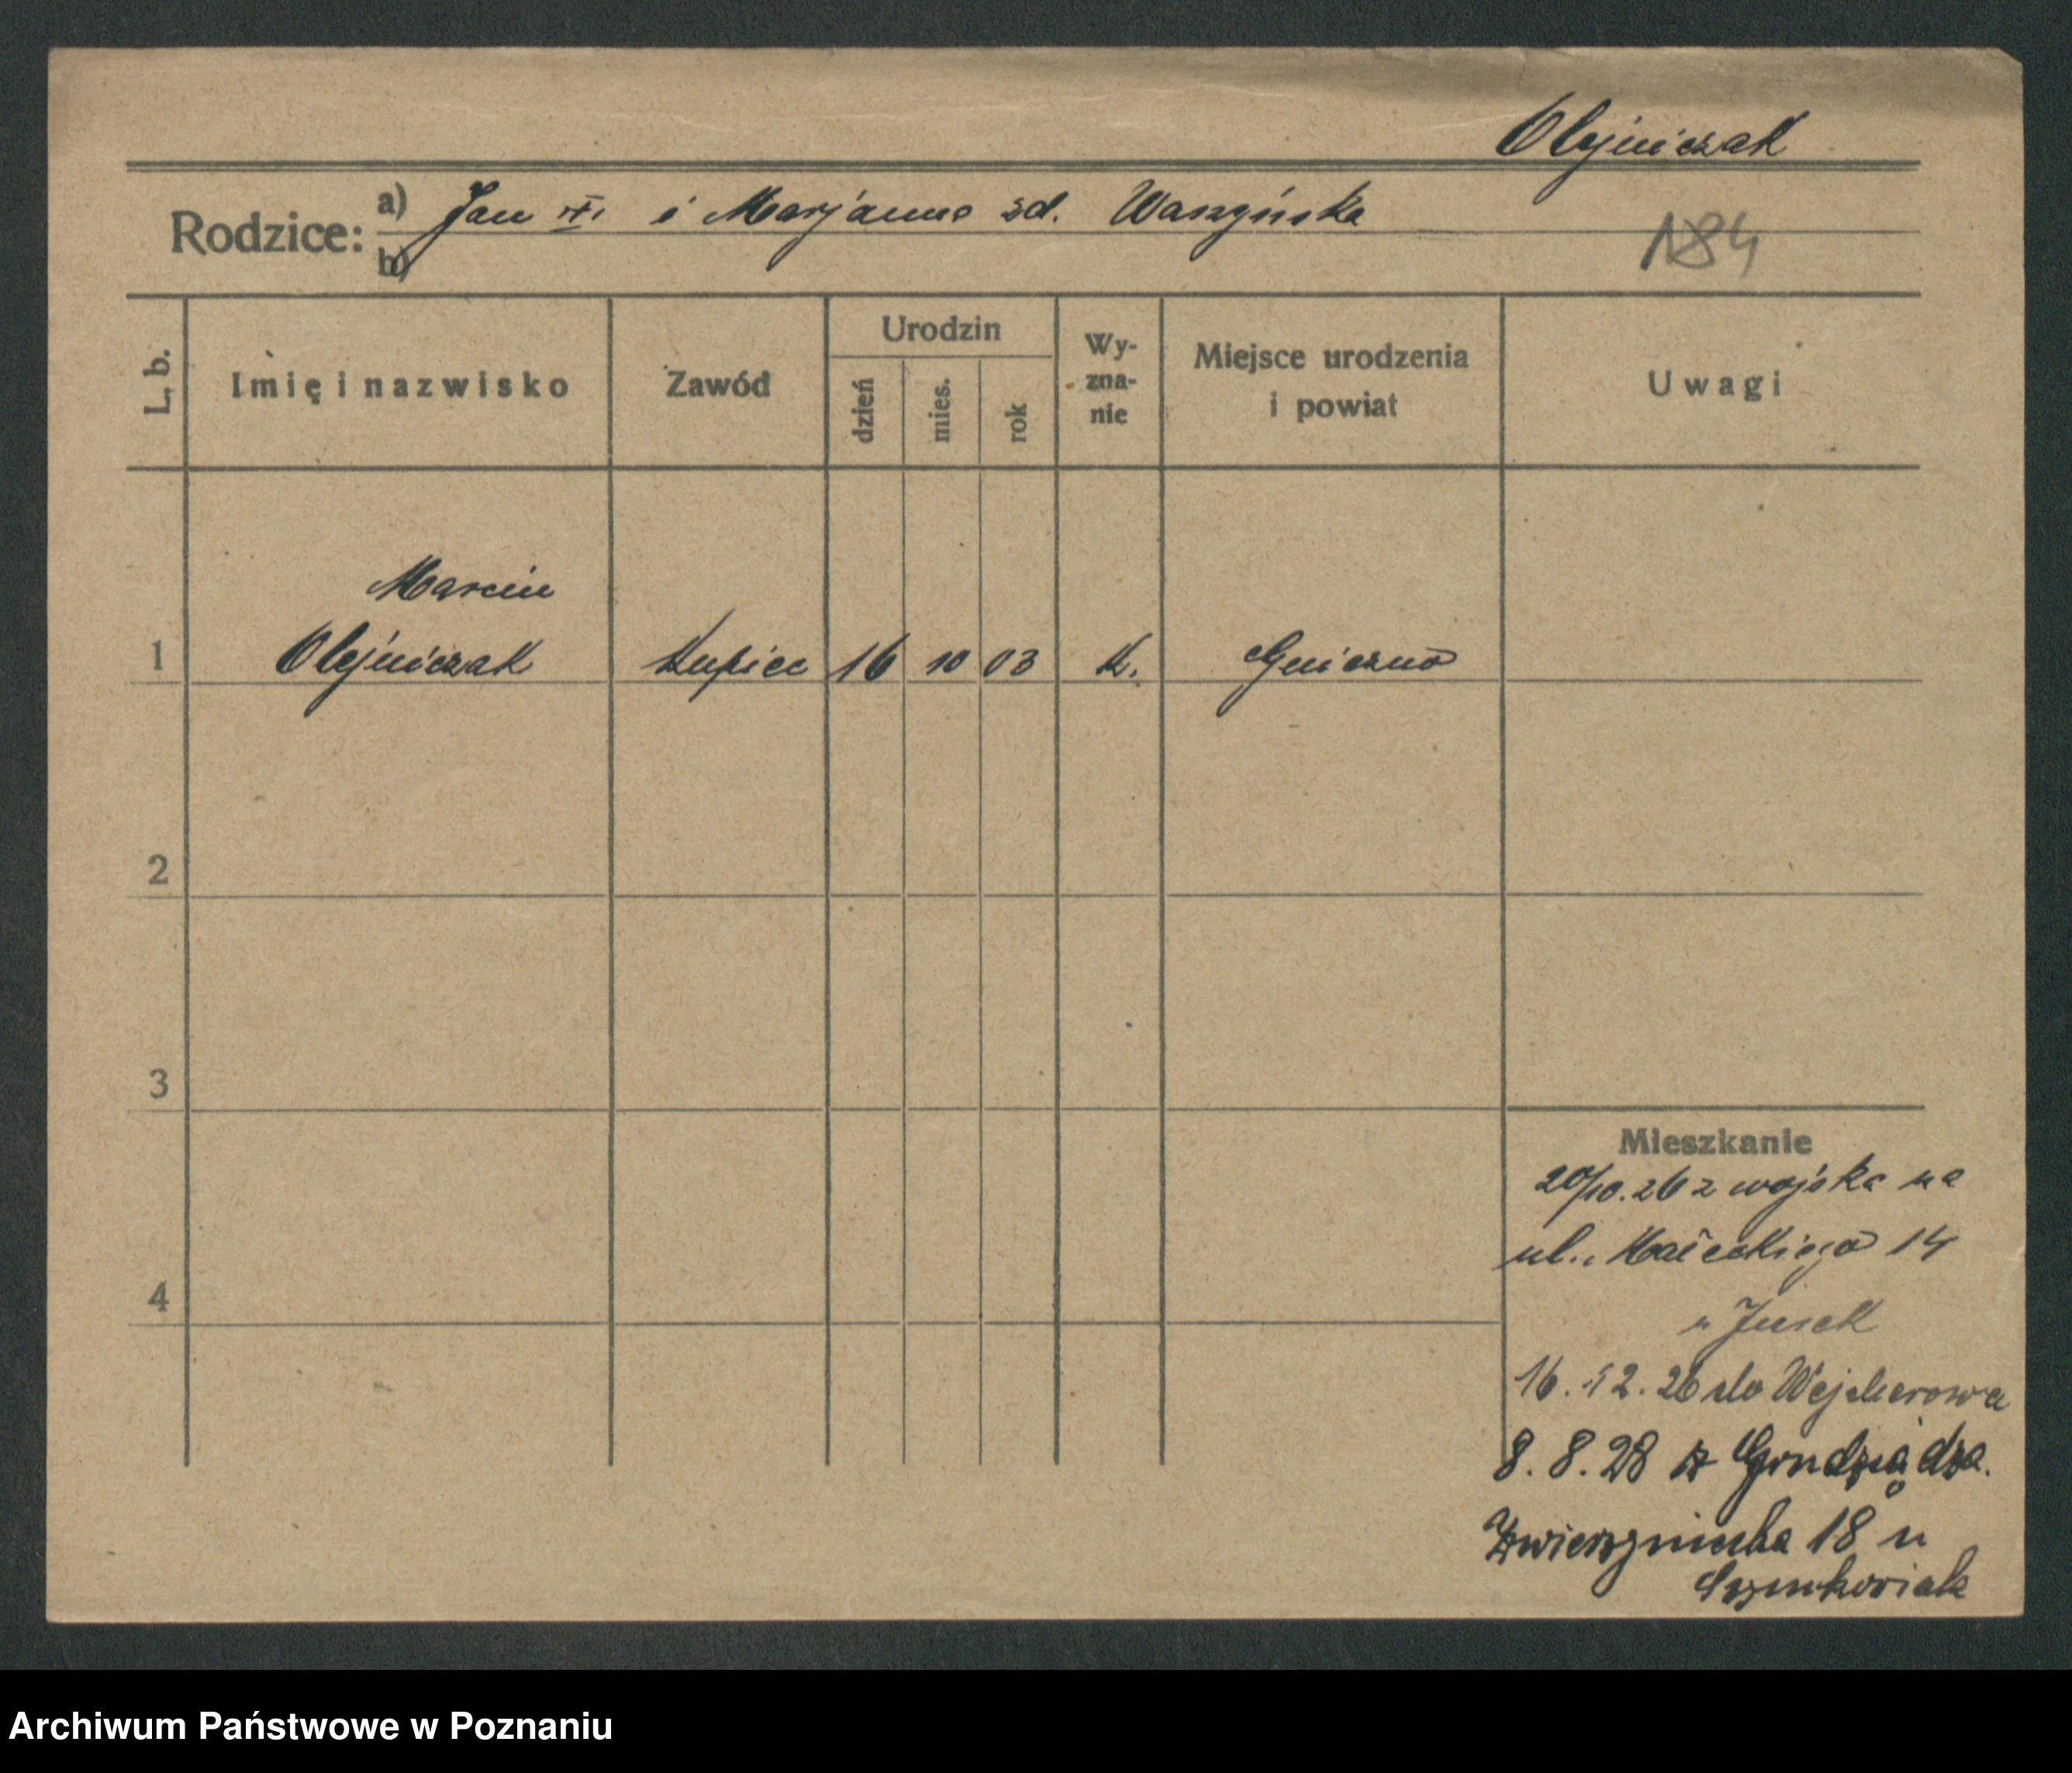 Olejniczak
Rodzice: a) Jan III i Marjanna zd. Waszyńska
b)
184
L. b.
Imię i nazwisko
Zawód
Urodzin
dzień
mies.
rok
Wy-
zna-
nie
Miejsce urodzenia
i powiat
Uwagi
Marcin
1 Olejniczak Kupiec 16 10 03 K. Gniezno
2
3
4
Mieszkanie
20/10.26 z wojska na
ul. Małeckiego 14
u
16.12.26 do Wejcherowa
8.8.28 z Grudziądza.
Zwierzyniecka 18 u
Szymkowiak
Archiwum Państwowe w Poznaniu